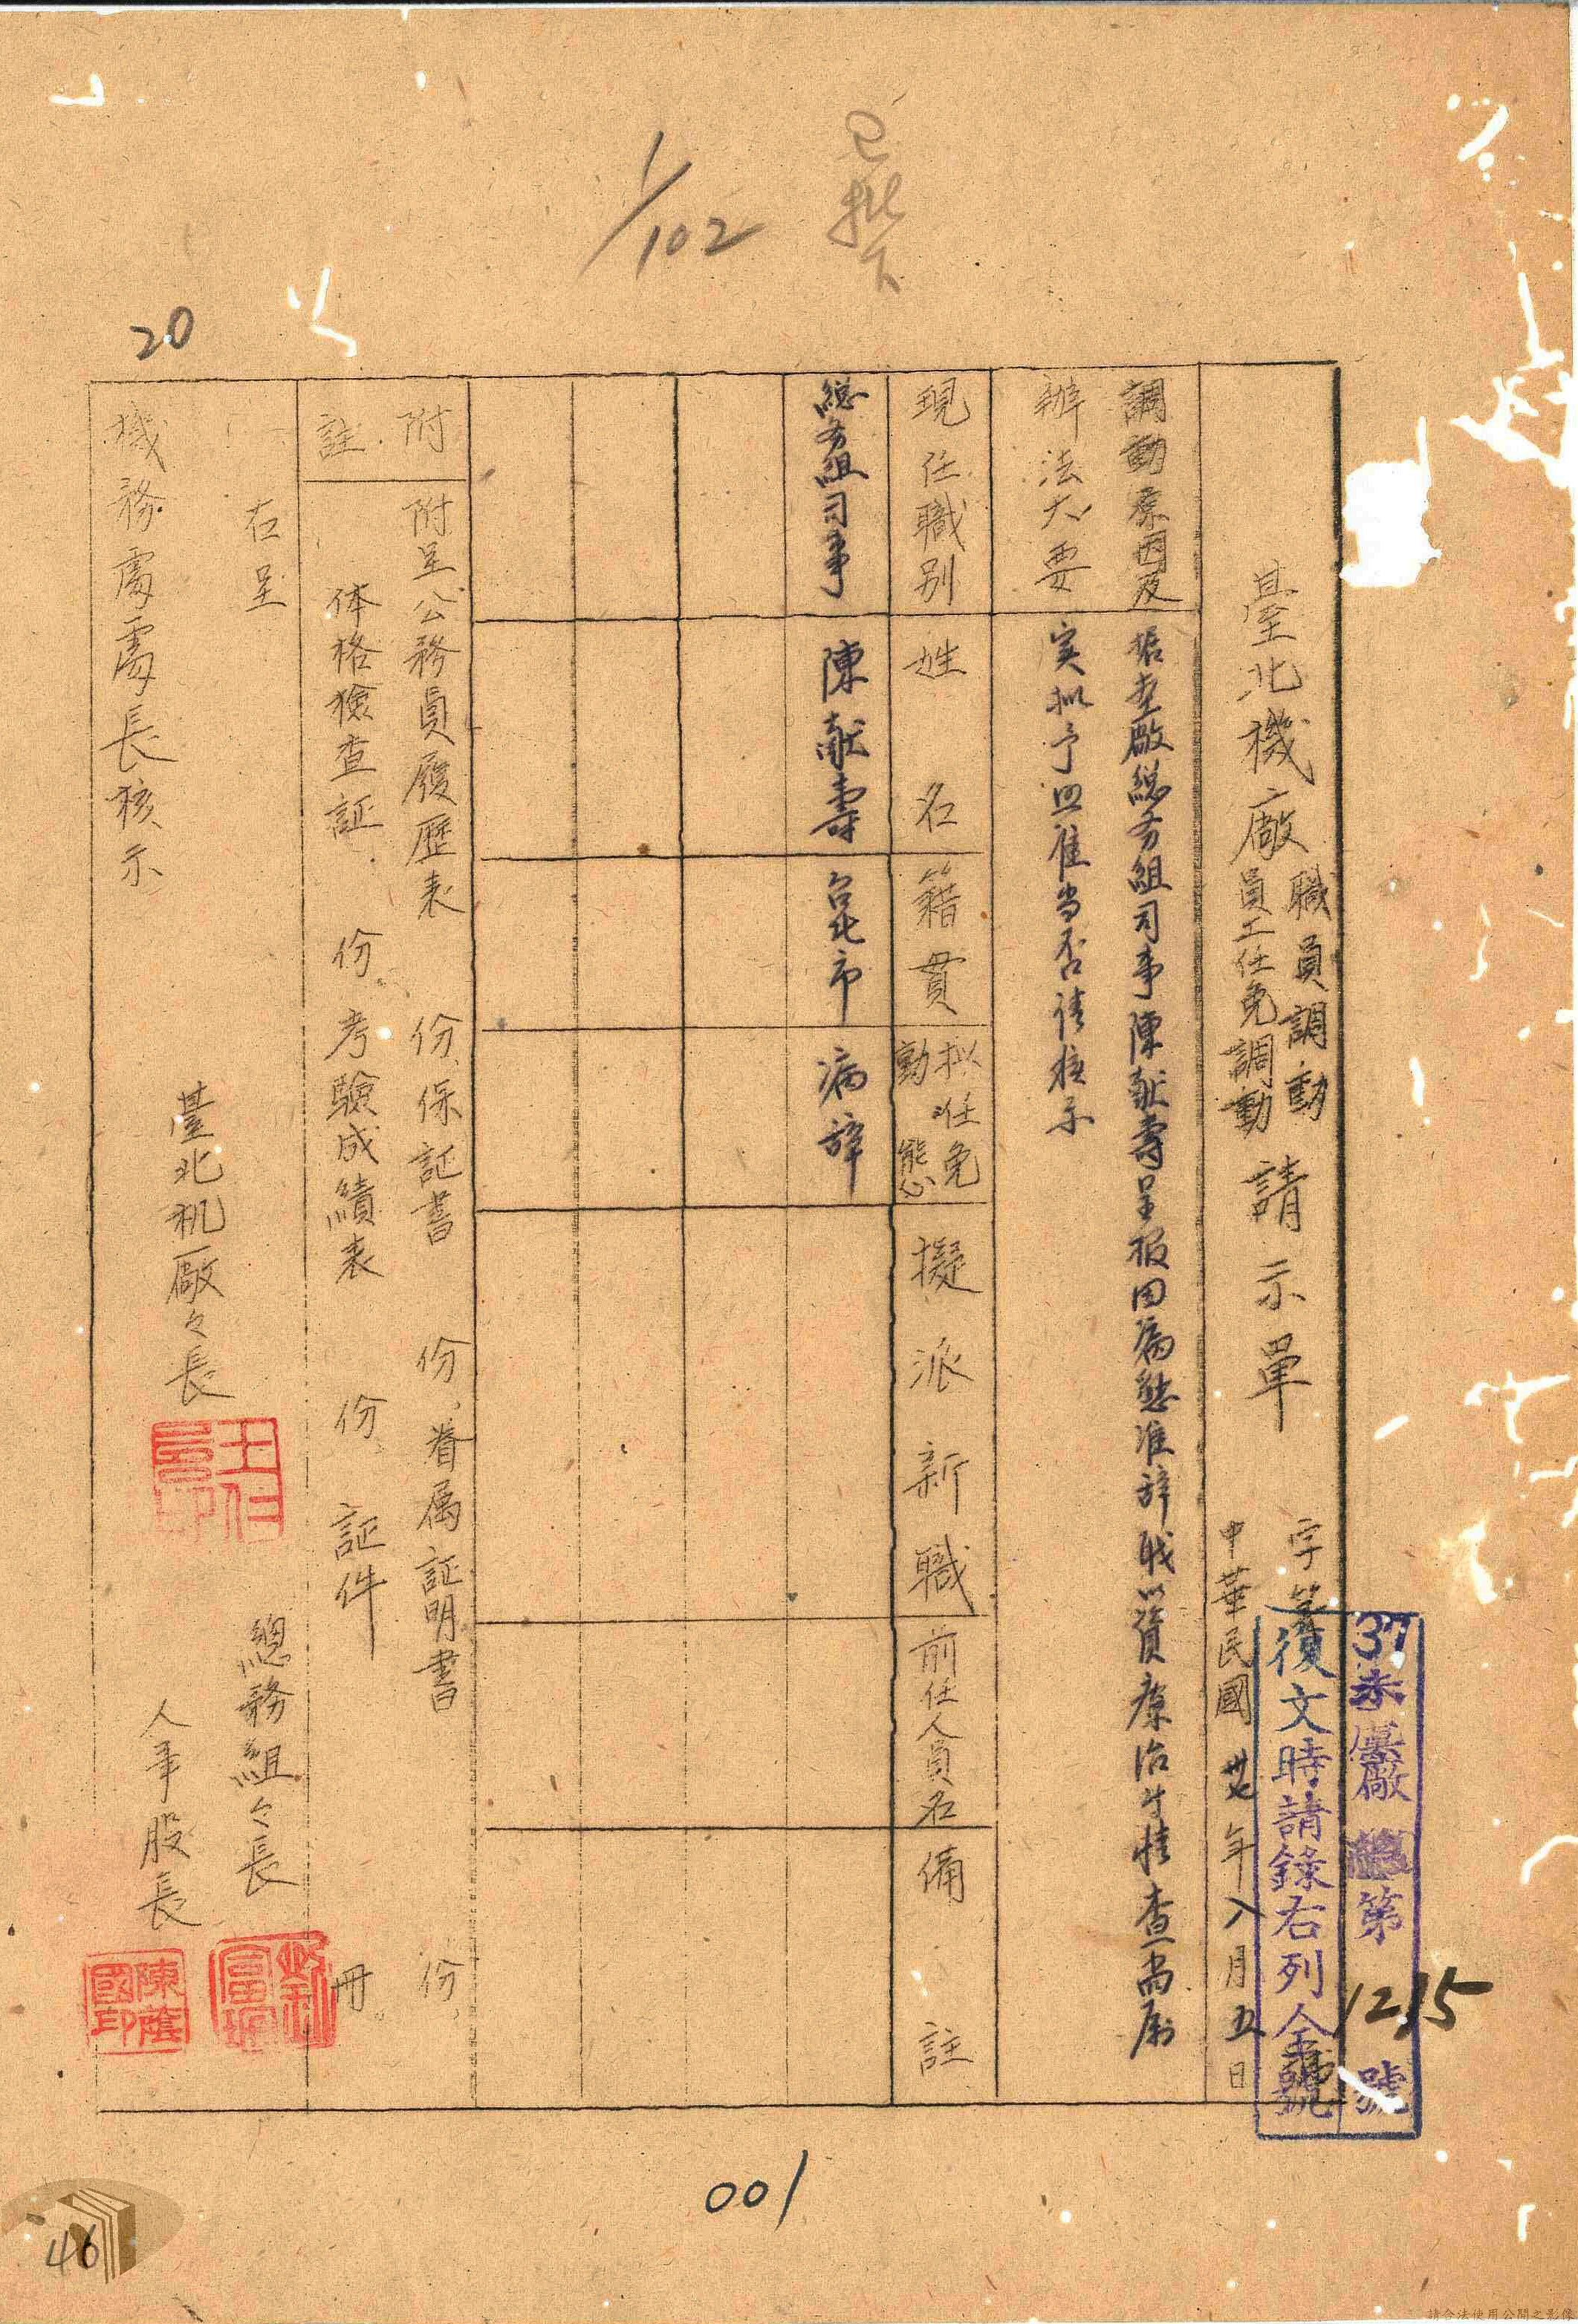 已批下
1/102
20
37未廠總第1215號
復文時請錄右列全號
臺北機廠職員調動
員工任免調動請示單
字第 號
中華民國卅七年八月五日
調動原因及
辦法大要
据本廠総务組司事陳献壽呈报因病懇准辞職以資療治等情查尚属
实拟予照准当否請核示
現任職別
姓名
籍貫
拟任免
動態
擬派新職
前任人員名
備註
総务組司事
陳献壽
台北市
病辞
附註
附呈公務員履歷表 份、保証書 份、眷属証明書 份、
体格檢查証 份、考驗成績表 份、証件 冊。
右呈
機務處處長核示
臺北机廠々長
總務組々長
人事股長
陳蔭國印
001
46
請合法使用公開之影像